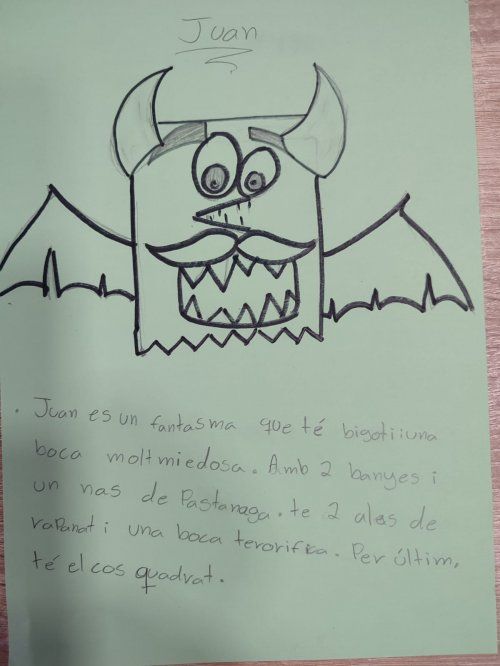 Juan
• Juan es un fantasma que té bigotiiuna
boca moltmiedosa. Amb 2 banyes i
un nas de Pastanaga. te 2 ales de
rapanat i una boca terorifica. Per últim,
té el cos quadrat.